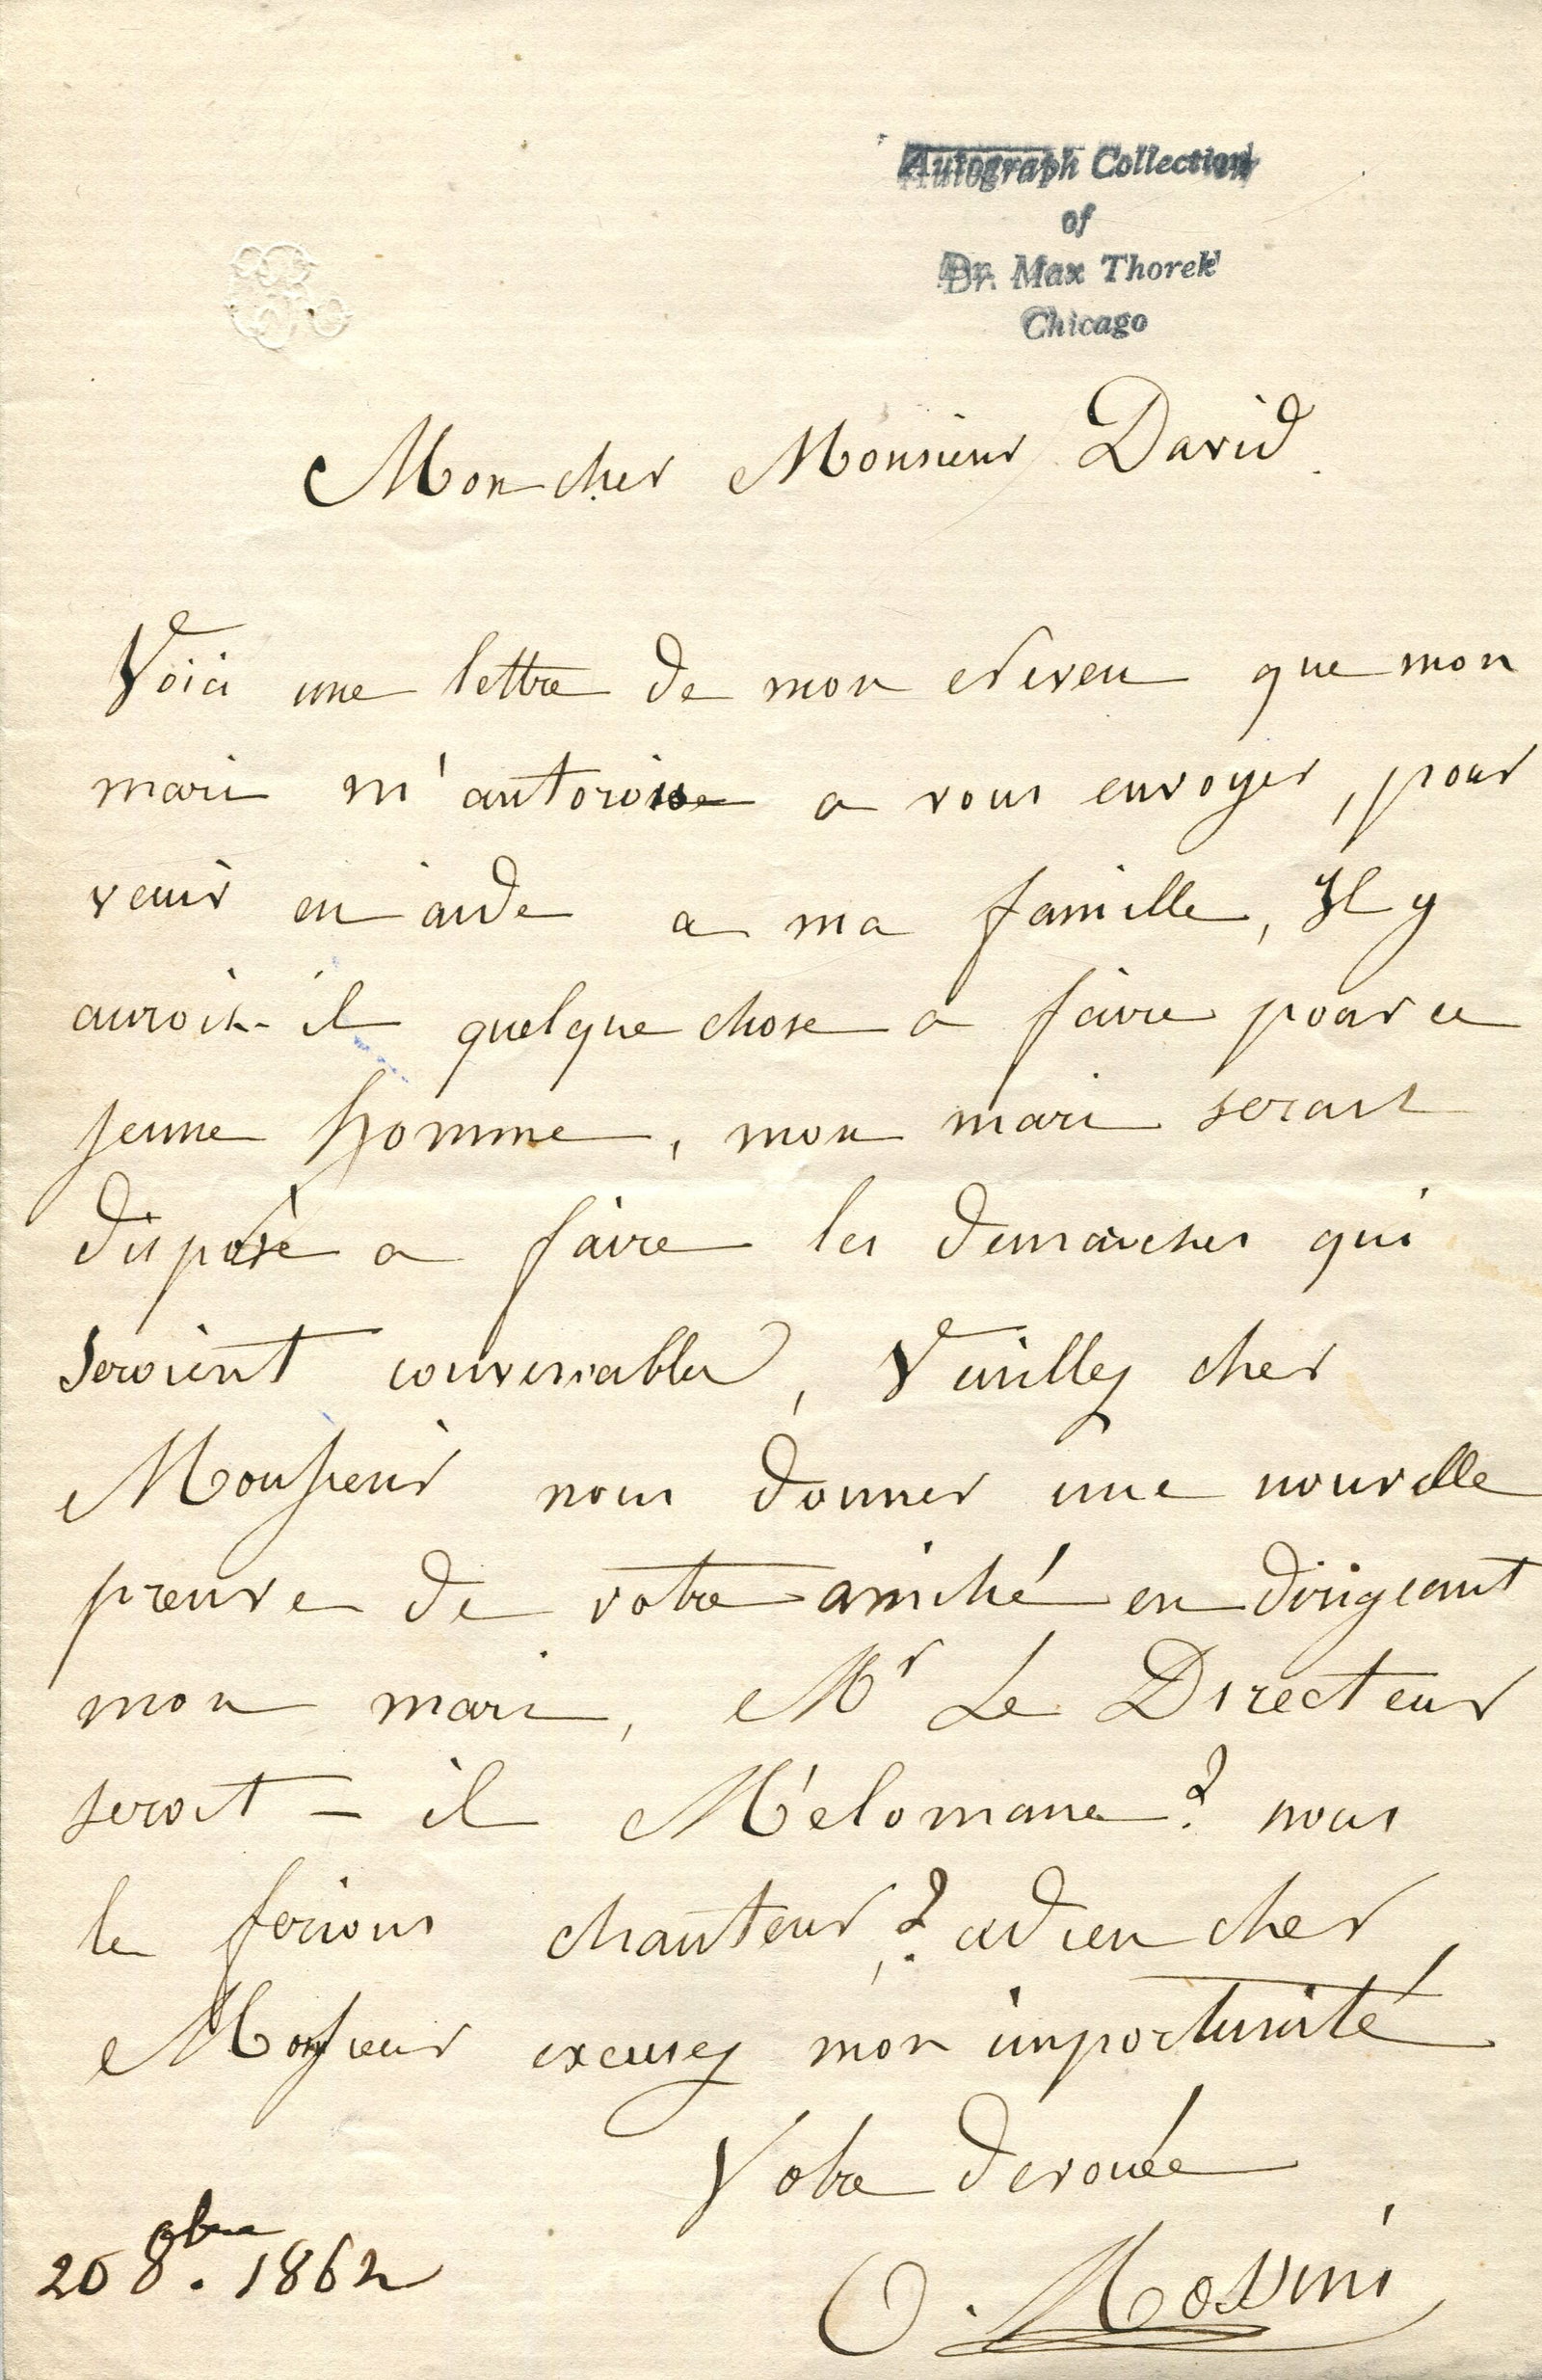 Autograph Collection
of
Dr. Max Thorek
Chicago
Mon cher Monsieur David
Voici une lettre de mon neveu que mon
mari m'autorise a vous envoyer, pour
venir en aide a ma famille, Il y
auroit-il quelque chose a faire pour ce
jeune homme, mon mari serait
disposé a faire les demarches qui
seroient convenables, Veuillez cher
Monsieur nous donner une nouvelle
preuve de votre amitié en dirigeant
mon mari, Mr Le Directeur
seroit-il Mélomane? nous
le ferions chanteur,? adieu cher
Monsieur excusez mon importunité
Votre devouée
O. Rossini
20 8bre. 1862